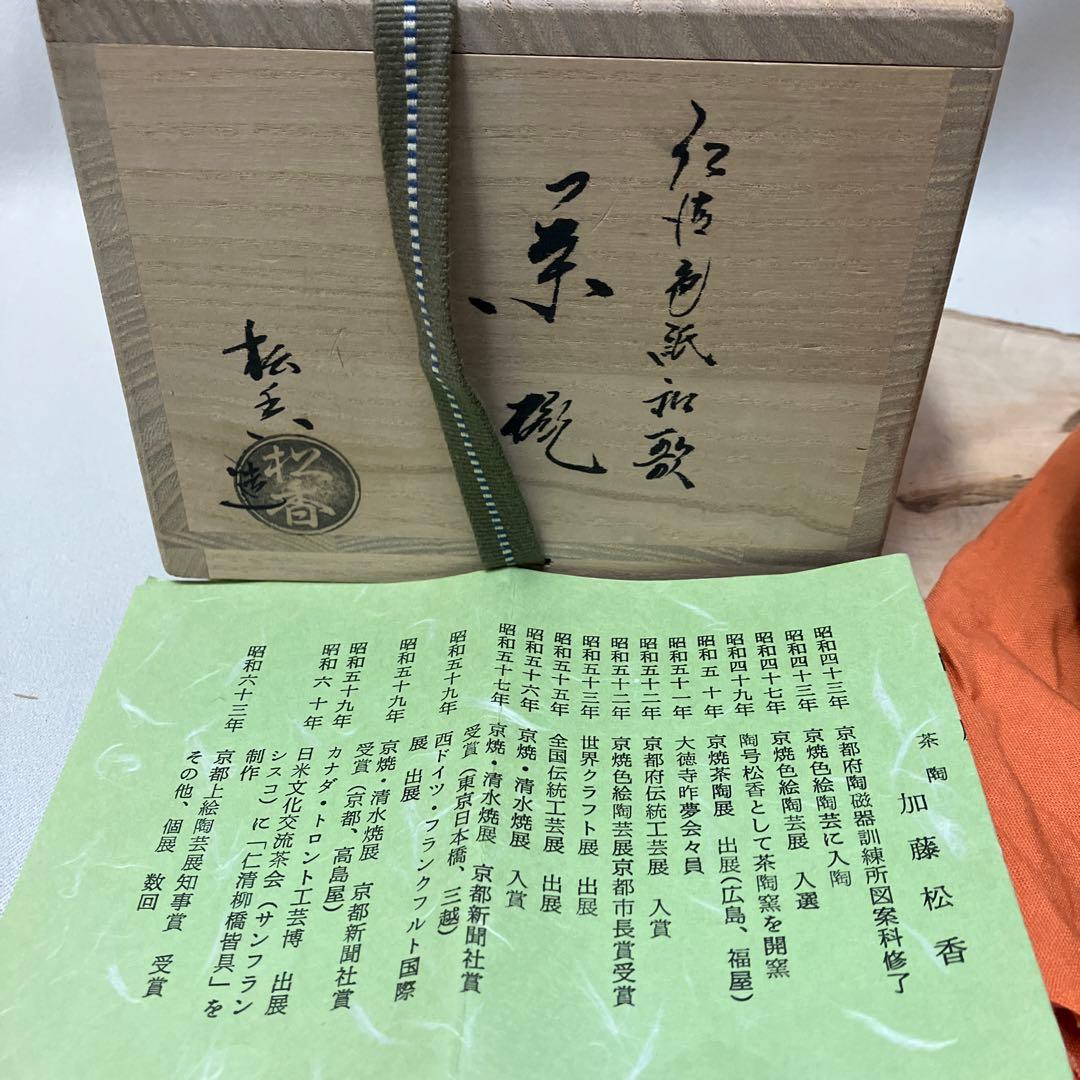 仁清色紙和歌
茶碗
松香造
松香
茶陶 加藤松香
昭和四十三年 京都府陶磁器訓練所図案科修了
昭和四十三年 京焼色絵陶芸に入陶
昭和四十七年 京焼色絵陶芸展 入選
昭和四十九年 陶号松香として茶陶窯を開窯
昭和五十年 京焼茶陶展 出展(広島、福屋)
昭和五十一年 大徳寺昨夢会々員
昭和五十二年 京都府伝統工芸展 入賞
昭和五十二年 京焼色絵陶芸展京都市長賞受賞
昭和五十三年 世界クラフト展 出展
昭和五十五年 全国伝統工芸展 出展
昭和五十六年 京焼・清水焼展 入賞
昭和五十七年 京焼・清水焼展 京都新聞社賞
受賞(東京日本橋、三越)
昭和五十九年 西ドイツ・フランクフルト国際
展 出展
昭和五十九年 京焼・清水焼展 京都新聞社賞
受賞(京都、高島屋)
昭和五十九年 カナダ・トロント工芸博 出展
昭和六十年 日米文化交流茶会(サンフラン
シスコ)に「仁清柳橋皆具」を
制作
昭和六十三年 京都上絵陶芸展知事賞 受賞
その他、個展 数回